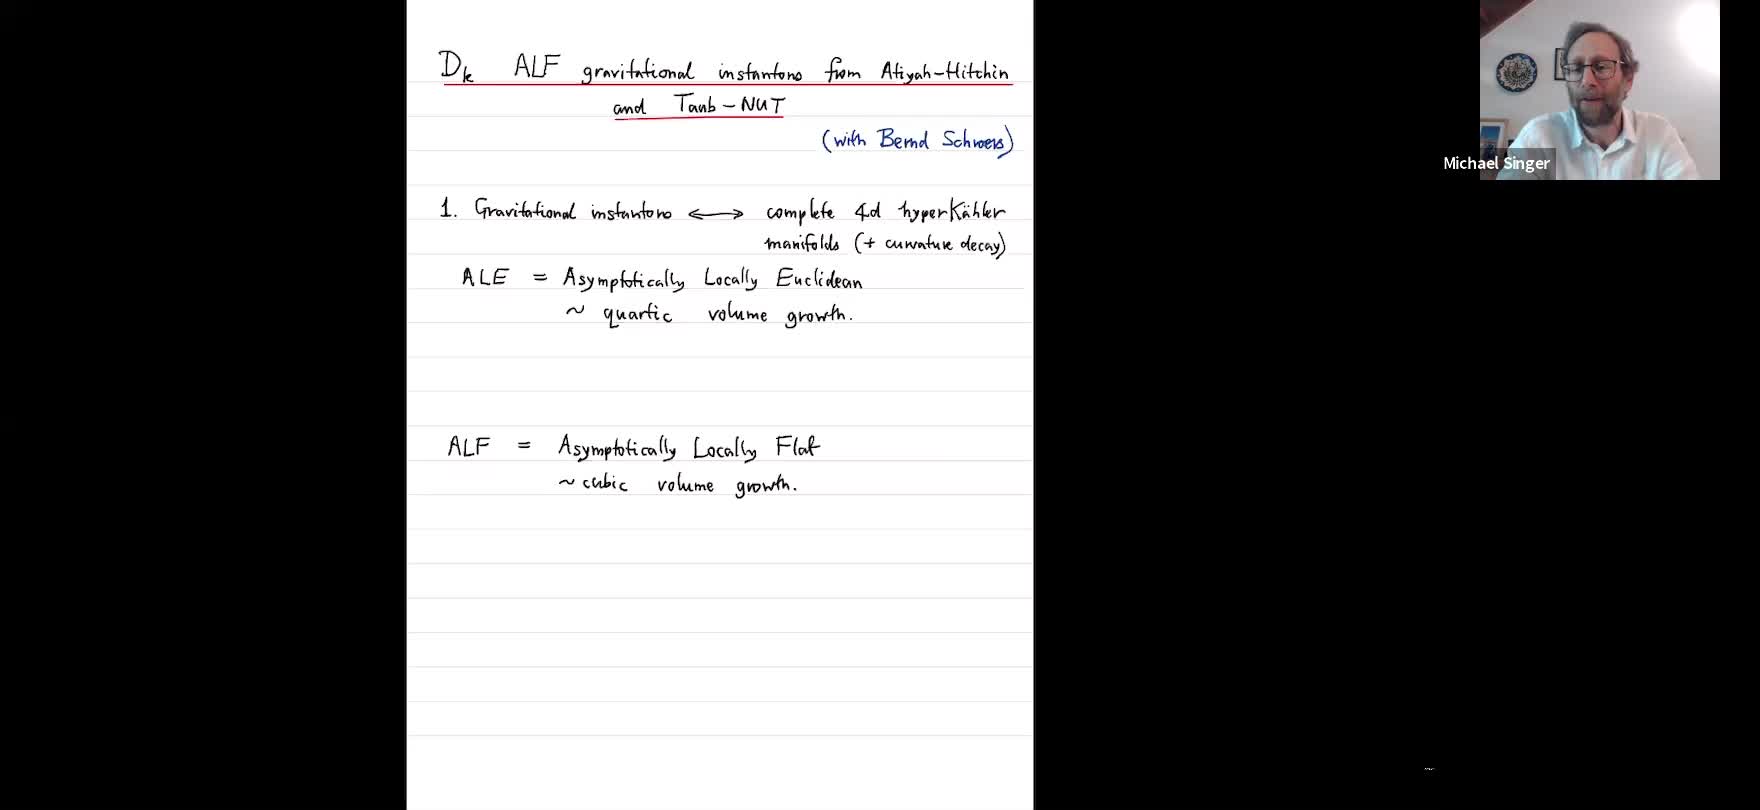 D_k ALF gravitational instantons from Atiyah-Hitchin
and Taub-NUT
(with Bernd Schroers)
1. Gravitational instantons ⟷ complete 4d hyperKähler
manifolds (+ curvature decay)
ALE = Asymptotically Locally Euclidean
~ quartic volume growth.
ALF = Asymptotically Locally Flat
~ cubic volume growth.
Michael Singer